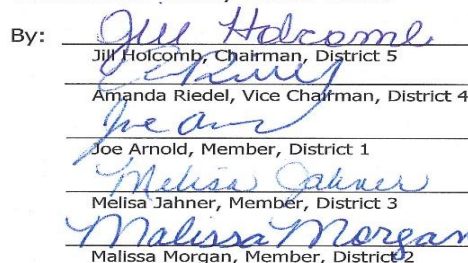 By: Jill Holcomb
Jill Holcomb, Chairman, District 5
Amanda Riedel, Vice Chairman, District 4
Joe Arnold, Member, District 1
Melisa Jahner
Melisa Jahner, Member, District 3
Malissa Morgan
Malissa Morgan, Member, District 2